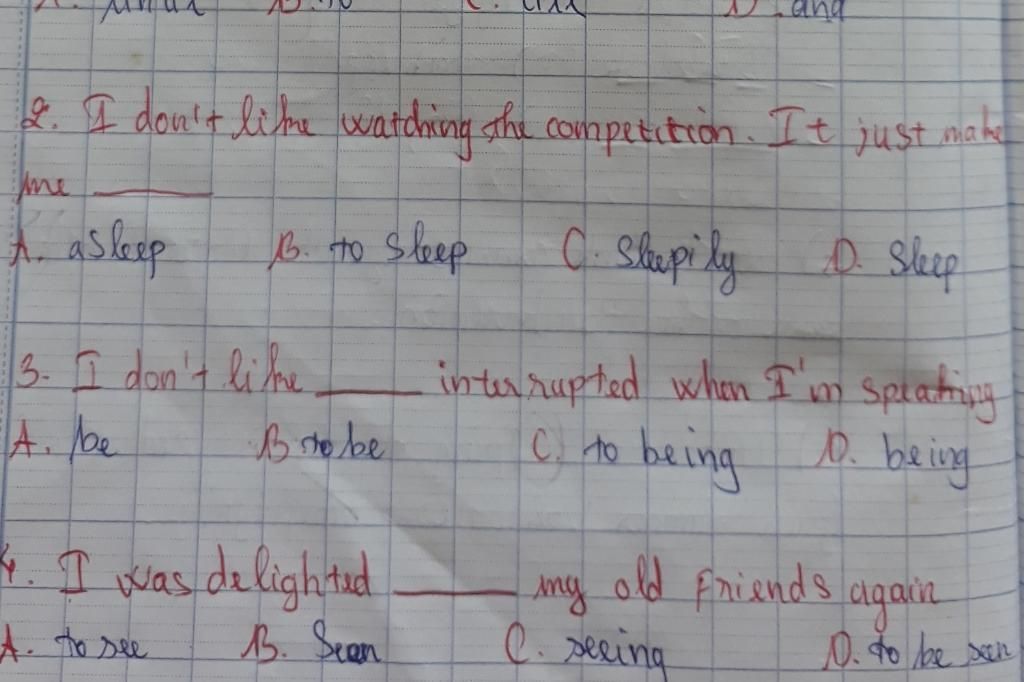 B. to D. and
2. I don't like watching the competition. It just make
me ______
A. asleep B. to sleep C. sleepily D. sleep
3. I don't like ______ interrupted when I'm speaking
A. be B to be C. to being D. being
4. I was delighted ______ my old friends again
A. to see B. Seen C. seeing D. to be seen